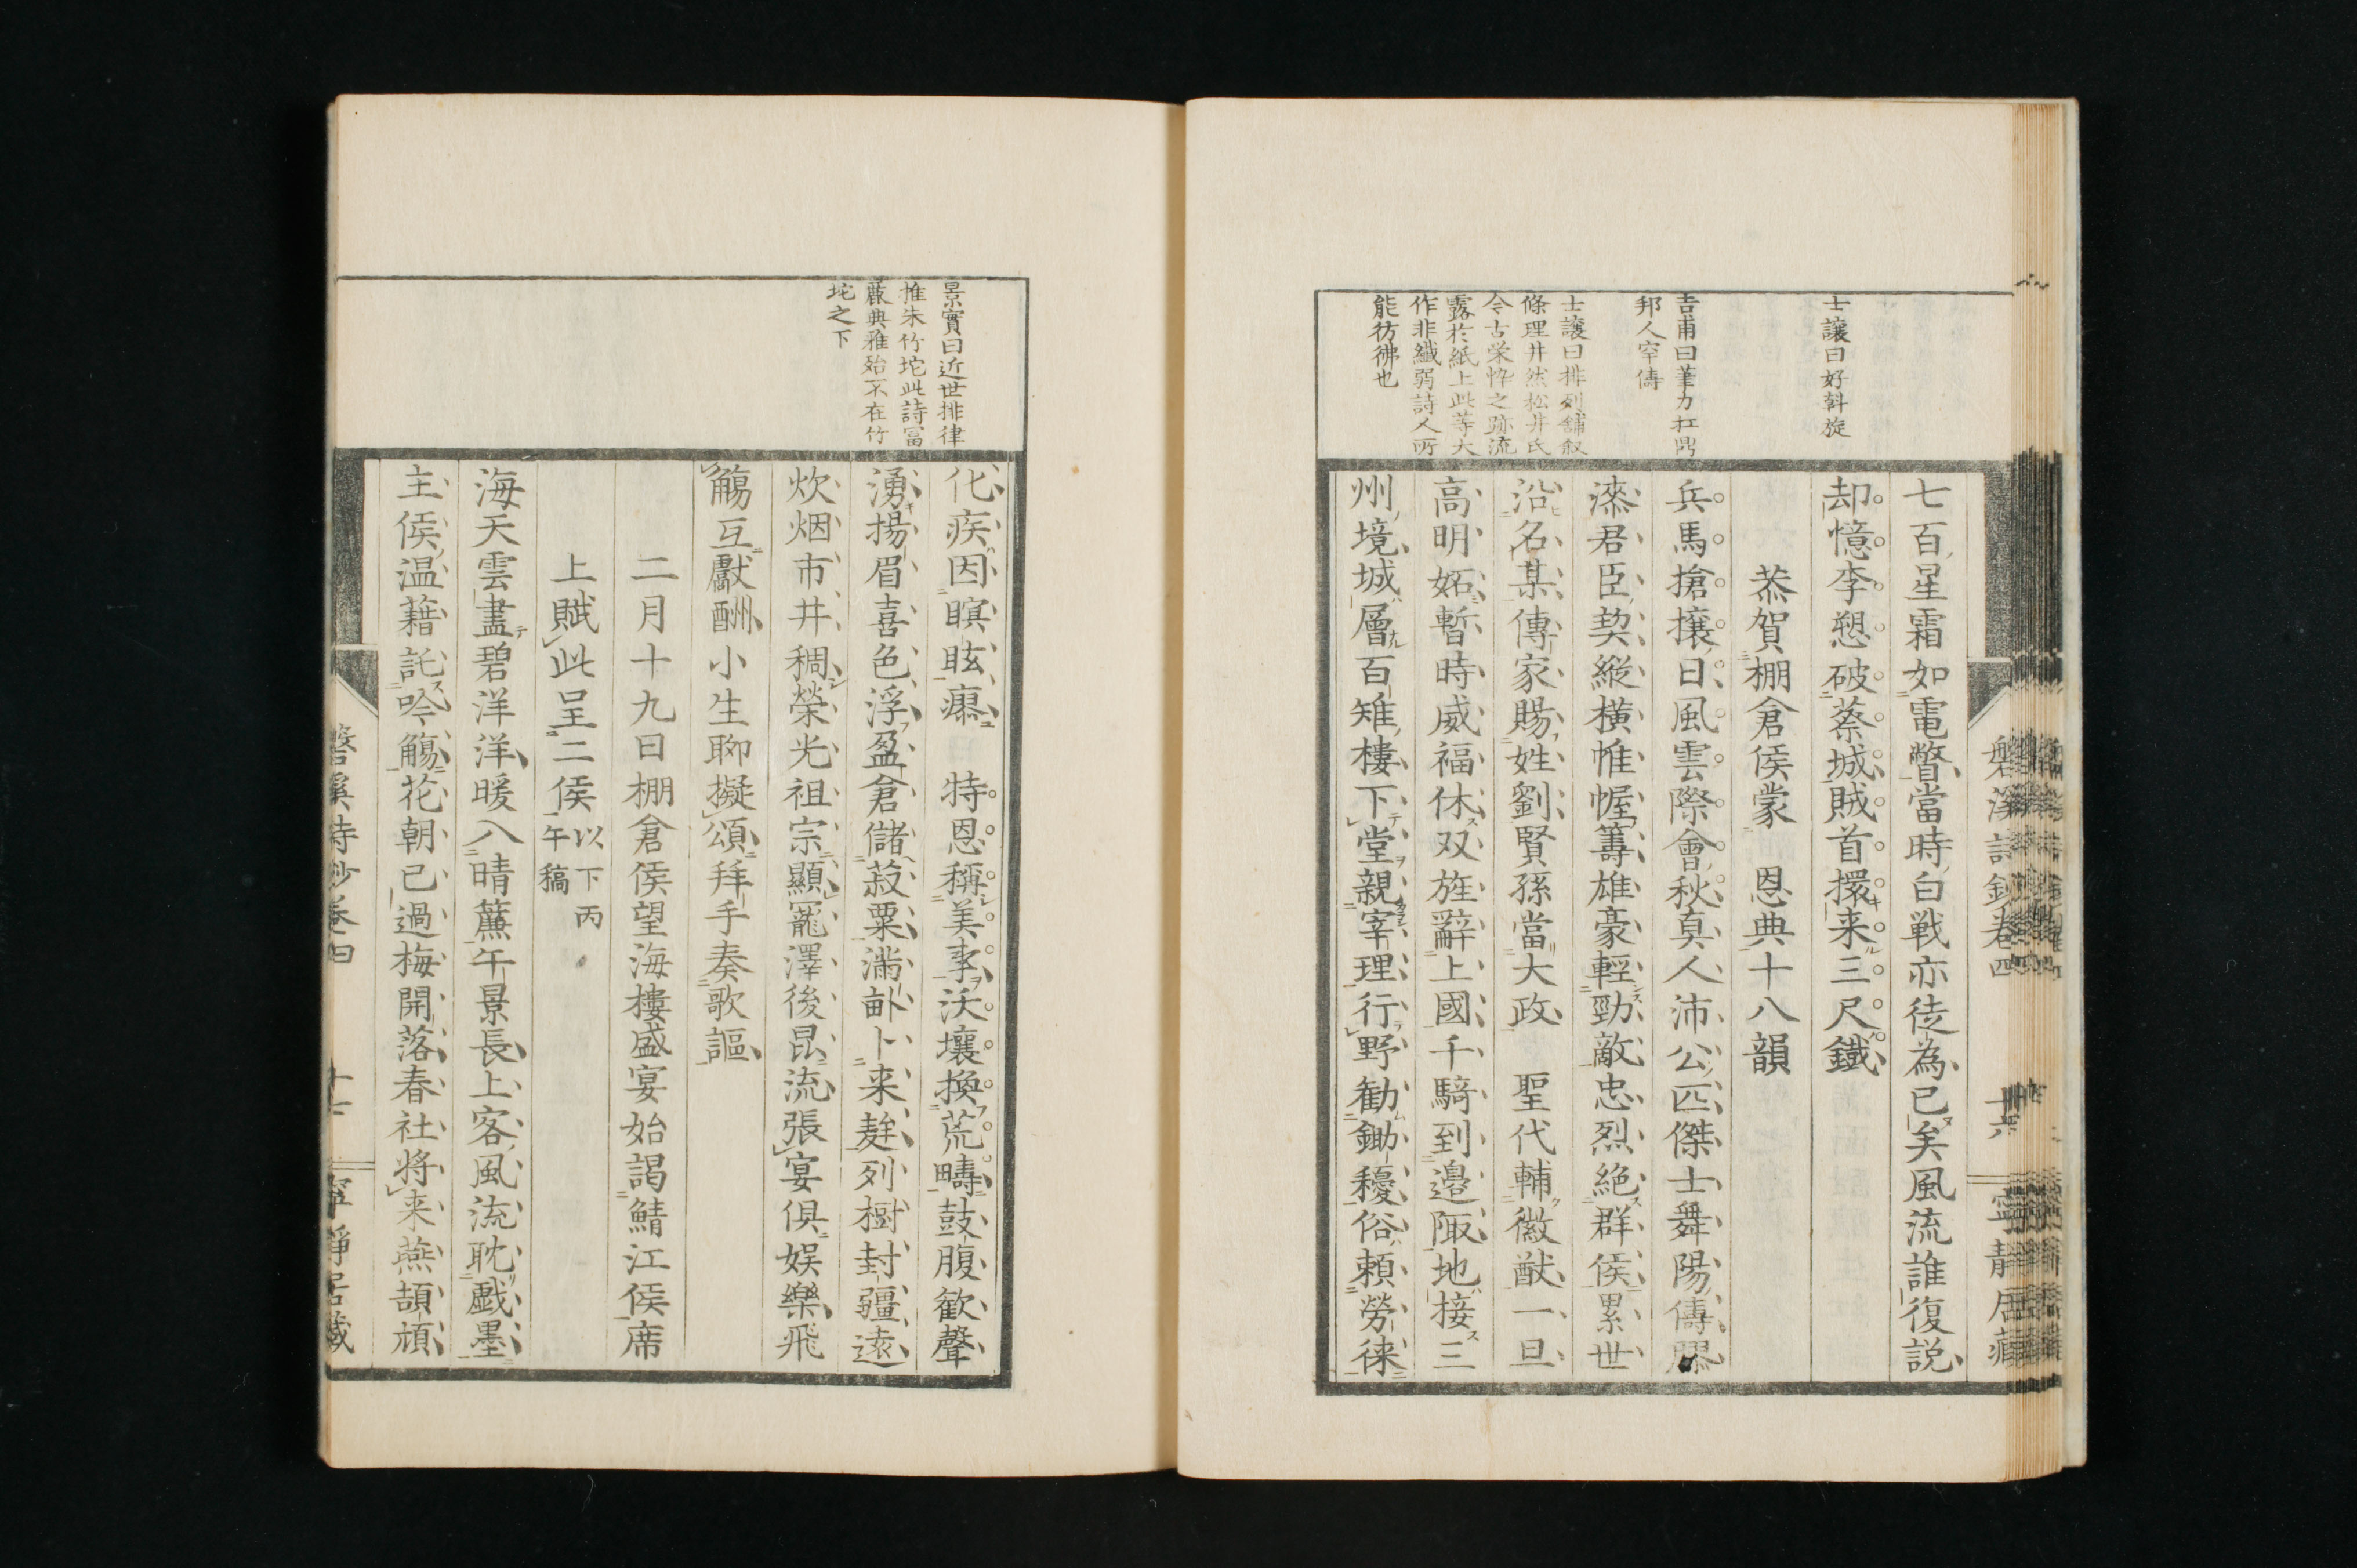 士讓曰好斡旋
吉甫曰筆力扛鼎
邦人罕儔
士讓曰排列鋪叙
條理井然松井氏
今古栄悴之跡流
露於紙上此等大
作非纖弱詩人所
能彷彿也
七百星霜如電瞥當時白戦亦徒為已矣風流誰復説
却憶李愬破蔡城賊首擐来三尺鐵
恭賀棚倉侯蒙 恩典十八韻
兵馬搶攘日風雲際會秋真人沛公匹傑士舞陽儔膠
漆君臣契縱橫帷幄籌雄豪輕勁敵忠烈絶群侯累世
沿名某傳家賜姓劉賢孫當大政 聖代輔徽猷一旦
高明妬暫時威福休双旌辭上國千騎到邉陬地接三
州境城層百雉樓下堂親宰理行野勧鋤耰俗頼勞徠
磐溪詩鈔卷四 十六 寧静居藏
景實曰近世排律
推朱竹垞此詩富
麗典雅殆不在竹
垞之下
化疾因瞑眩瘳 特恩稱美事沃壤換荒疇鼓腹歓聲
湧揚眉喜色浮盈倉儲菽粟満畝卜来麰列樹封疆遠
炊烟市井稠榮光祖宗顯寵澤後昆流張宴倶娯樂飛
觴互獻酬小生聊擬頌拜手奏歌謳
二月十九日棚倉侯望海樓盛宴始謁鯖江侯席
上賦此呈二侯 以下丙
午稿
海天雲盡碧洋洋暖入晴簾午景長上客風流耽戯墨
主侯温藉託吟觴花朝已過梅開落春社将来燕頡頏
磐溪詩鈔卷四 十七 寧静居藏